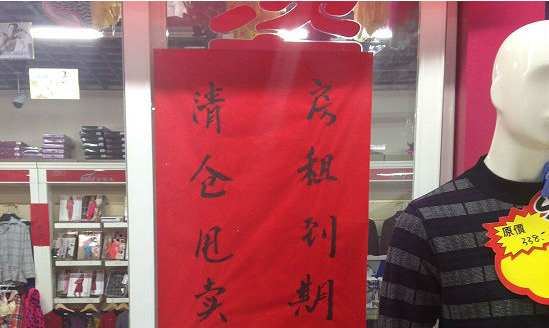 房租到期
清仓甩卖
原價
338.-